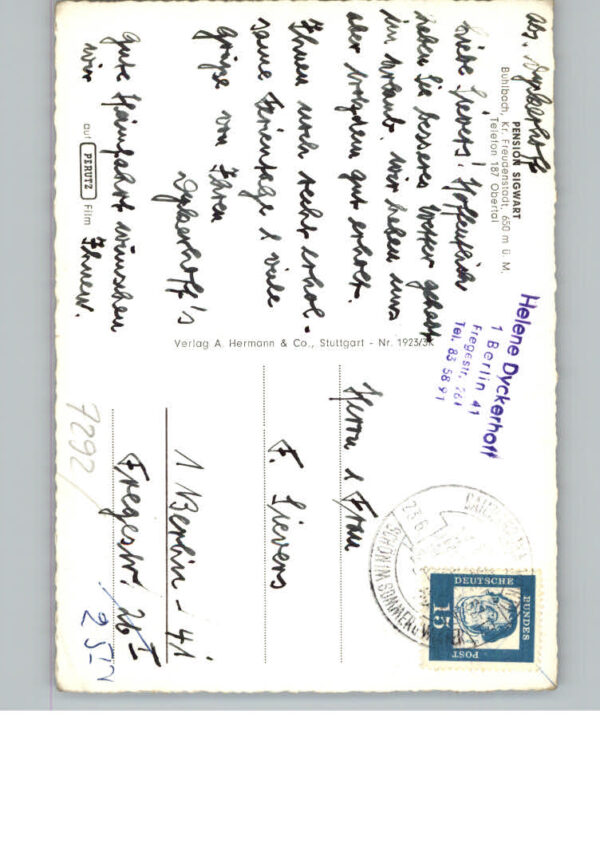 Abs. Dyckerhoff
PENSION SIGWART
Buhlbach, Kr. Freudenstadt, 650 m ü. M.
Telefon 187 Obertal
Liebe Sievers! Hoffentlich
haben Sie besseres Wetter gehabt
im Urlaub. Wir haben uns
aber trotzdem gut erholt.
Ihnen noch recht erhol-
same Ferientage & viele
Grüße von Ihren
Dyckerhoff's
Gute Heimfahrt wünschen
wir Ihnen.
auf PERUTZ Film
Verlag A. Hermann & Co., Stuttgart - Nr. 1923/3K
Helene Dyckerhoff
1 Berlin 41
Fregestr. 26 I
Tel. 83 58 91
DEUTSCHE
BUNDES
POST
15
SCHÖN IM SOMMER U.
23.6
Herrn & Frau
F. Sievers
1 Berlin - 41
Fregestr. 26 I
7292/